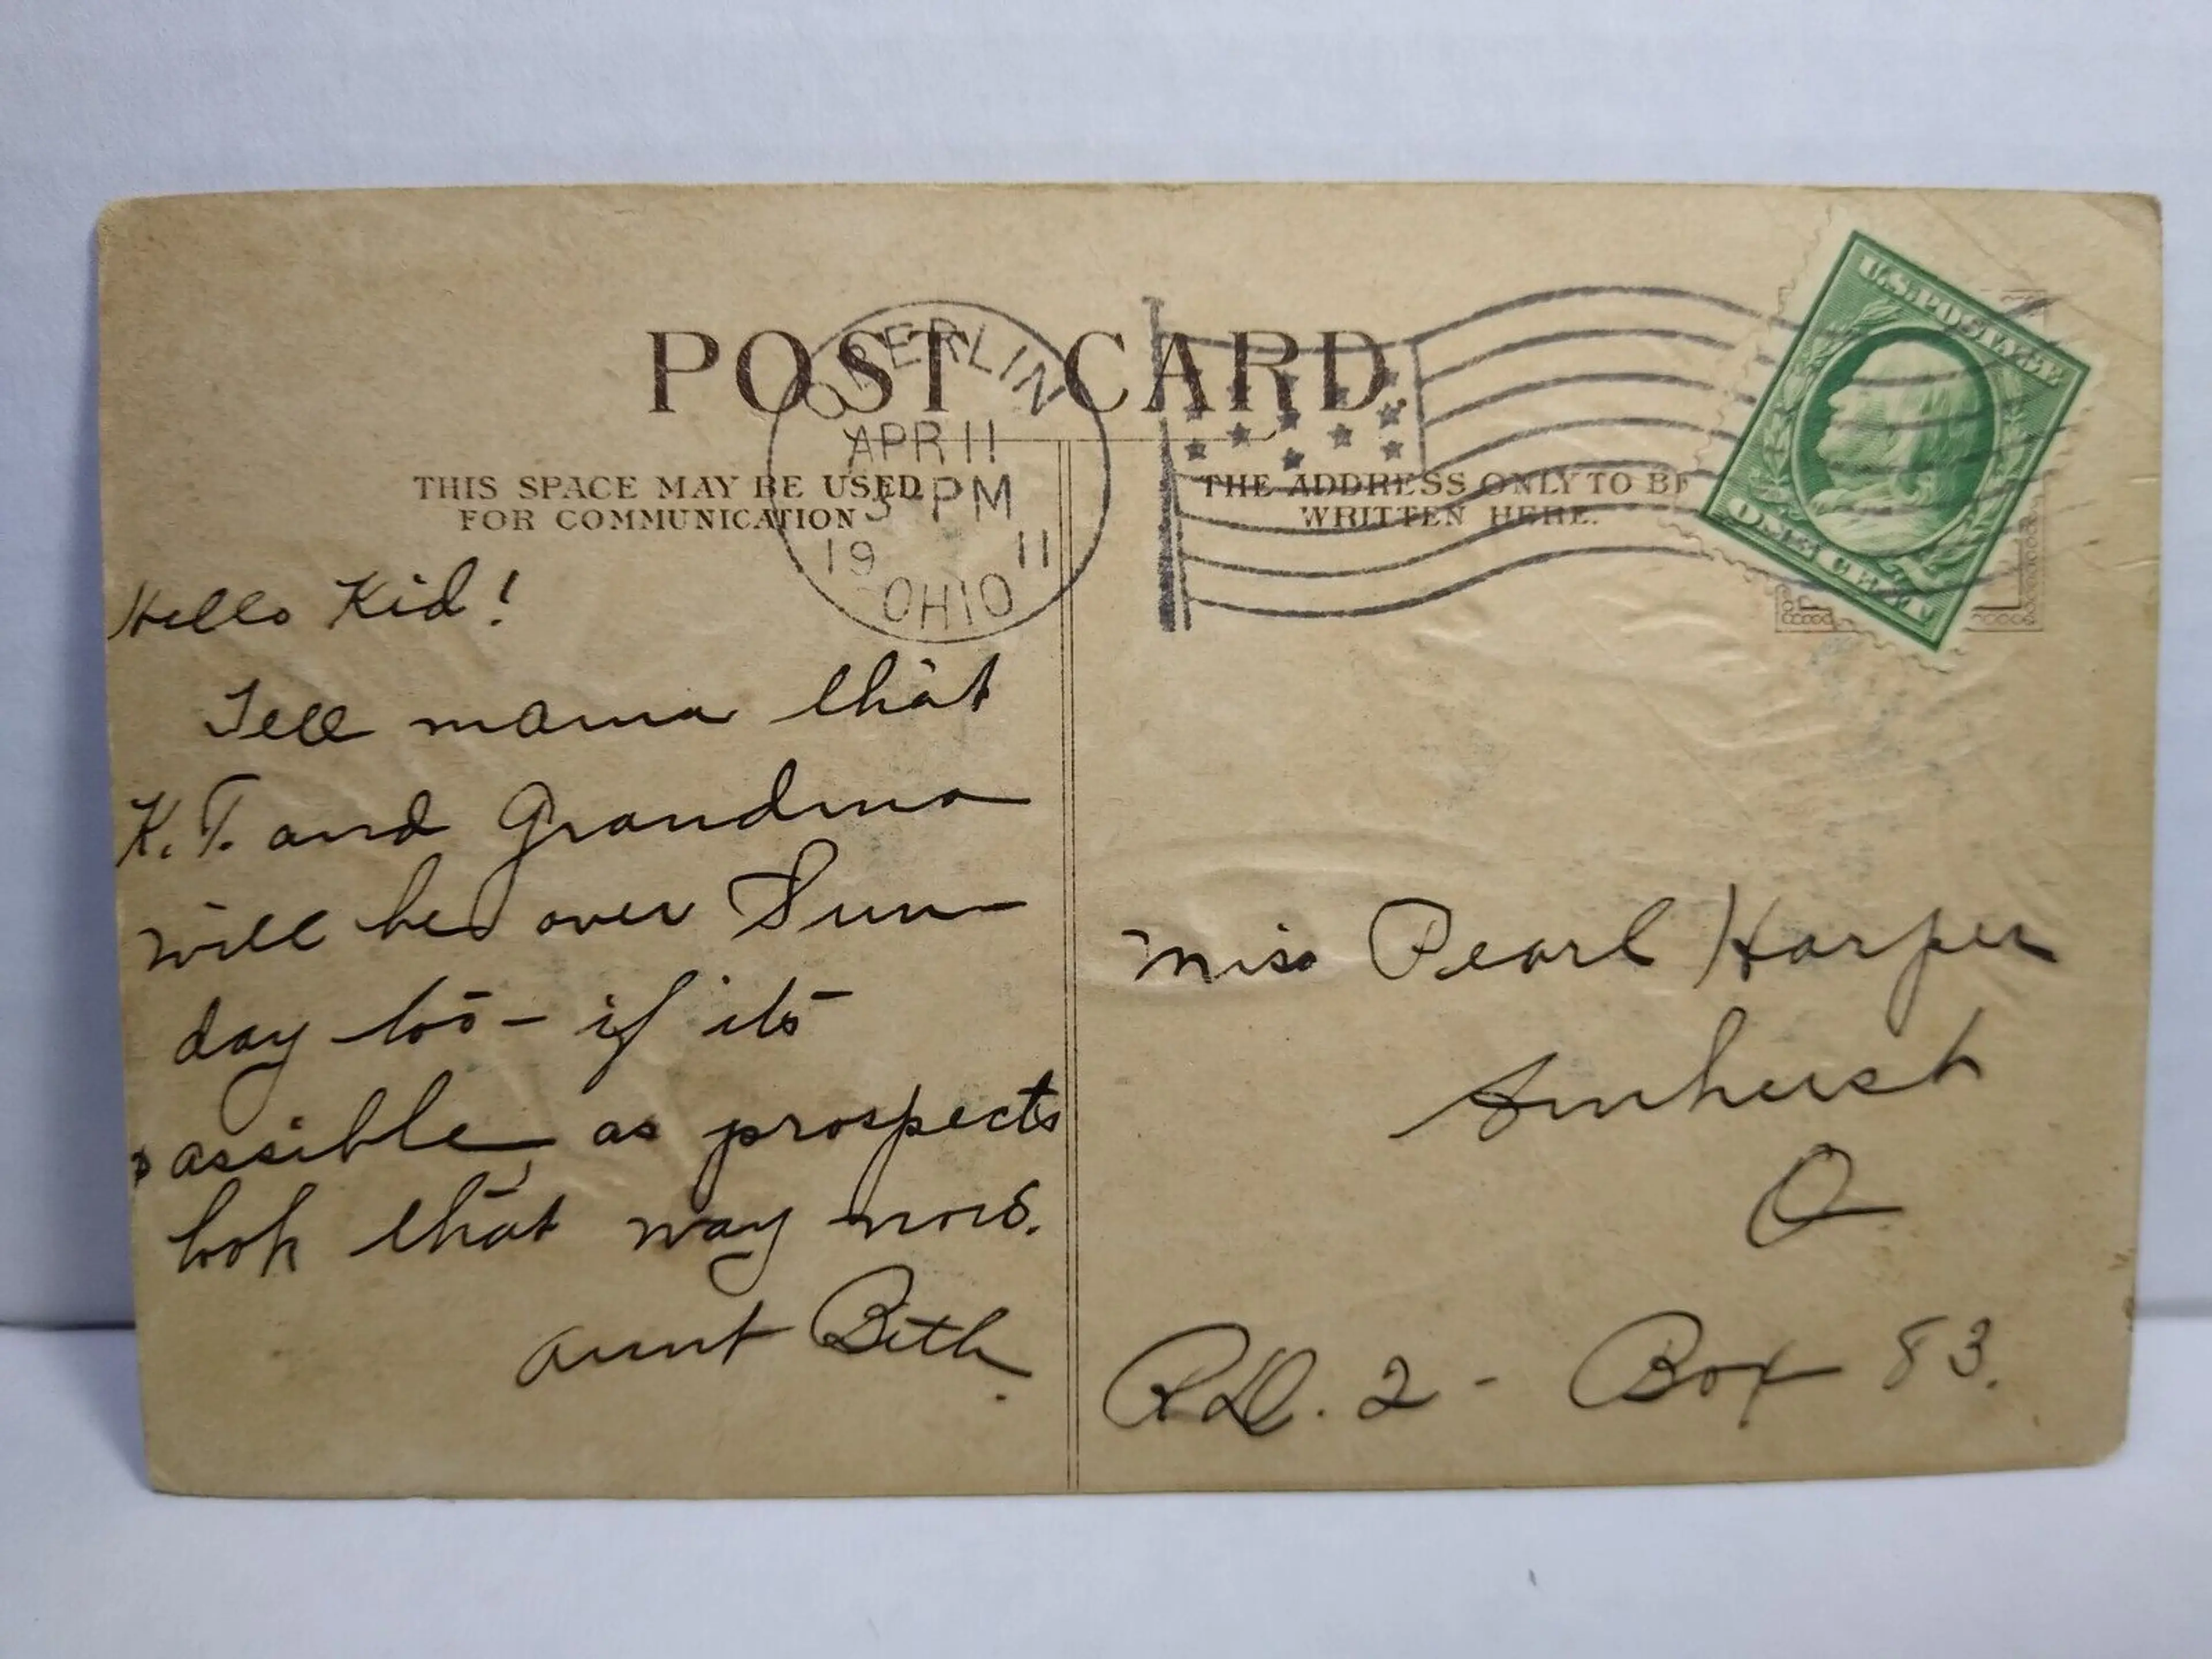 POST CARD.
OBERLIN
APR 11
3-PM
19 11
OHIO
U.S. POSTAGE
ONE CENT
THIS SPACE MAY BE USED
FOR COMMUNICATION
THE ADDRESS ONLY TO BE
WRITTEN HERE.
Hello Kid!
Tell mama that
K.T. and Grandma
will be over Sun-
day too - if its
possible, as prospects
look that way now.
Aunt Beth.
Miss Pearl Harper
Amherst
O
R.D. 2 - Box 83.